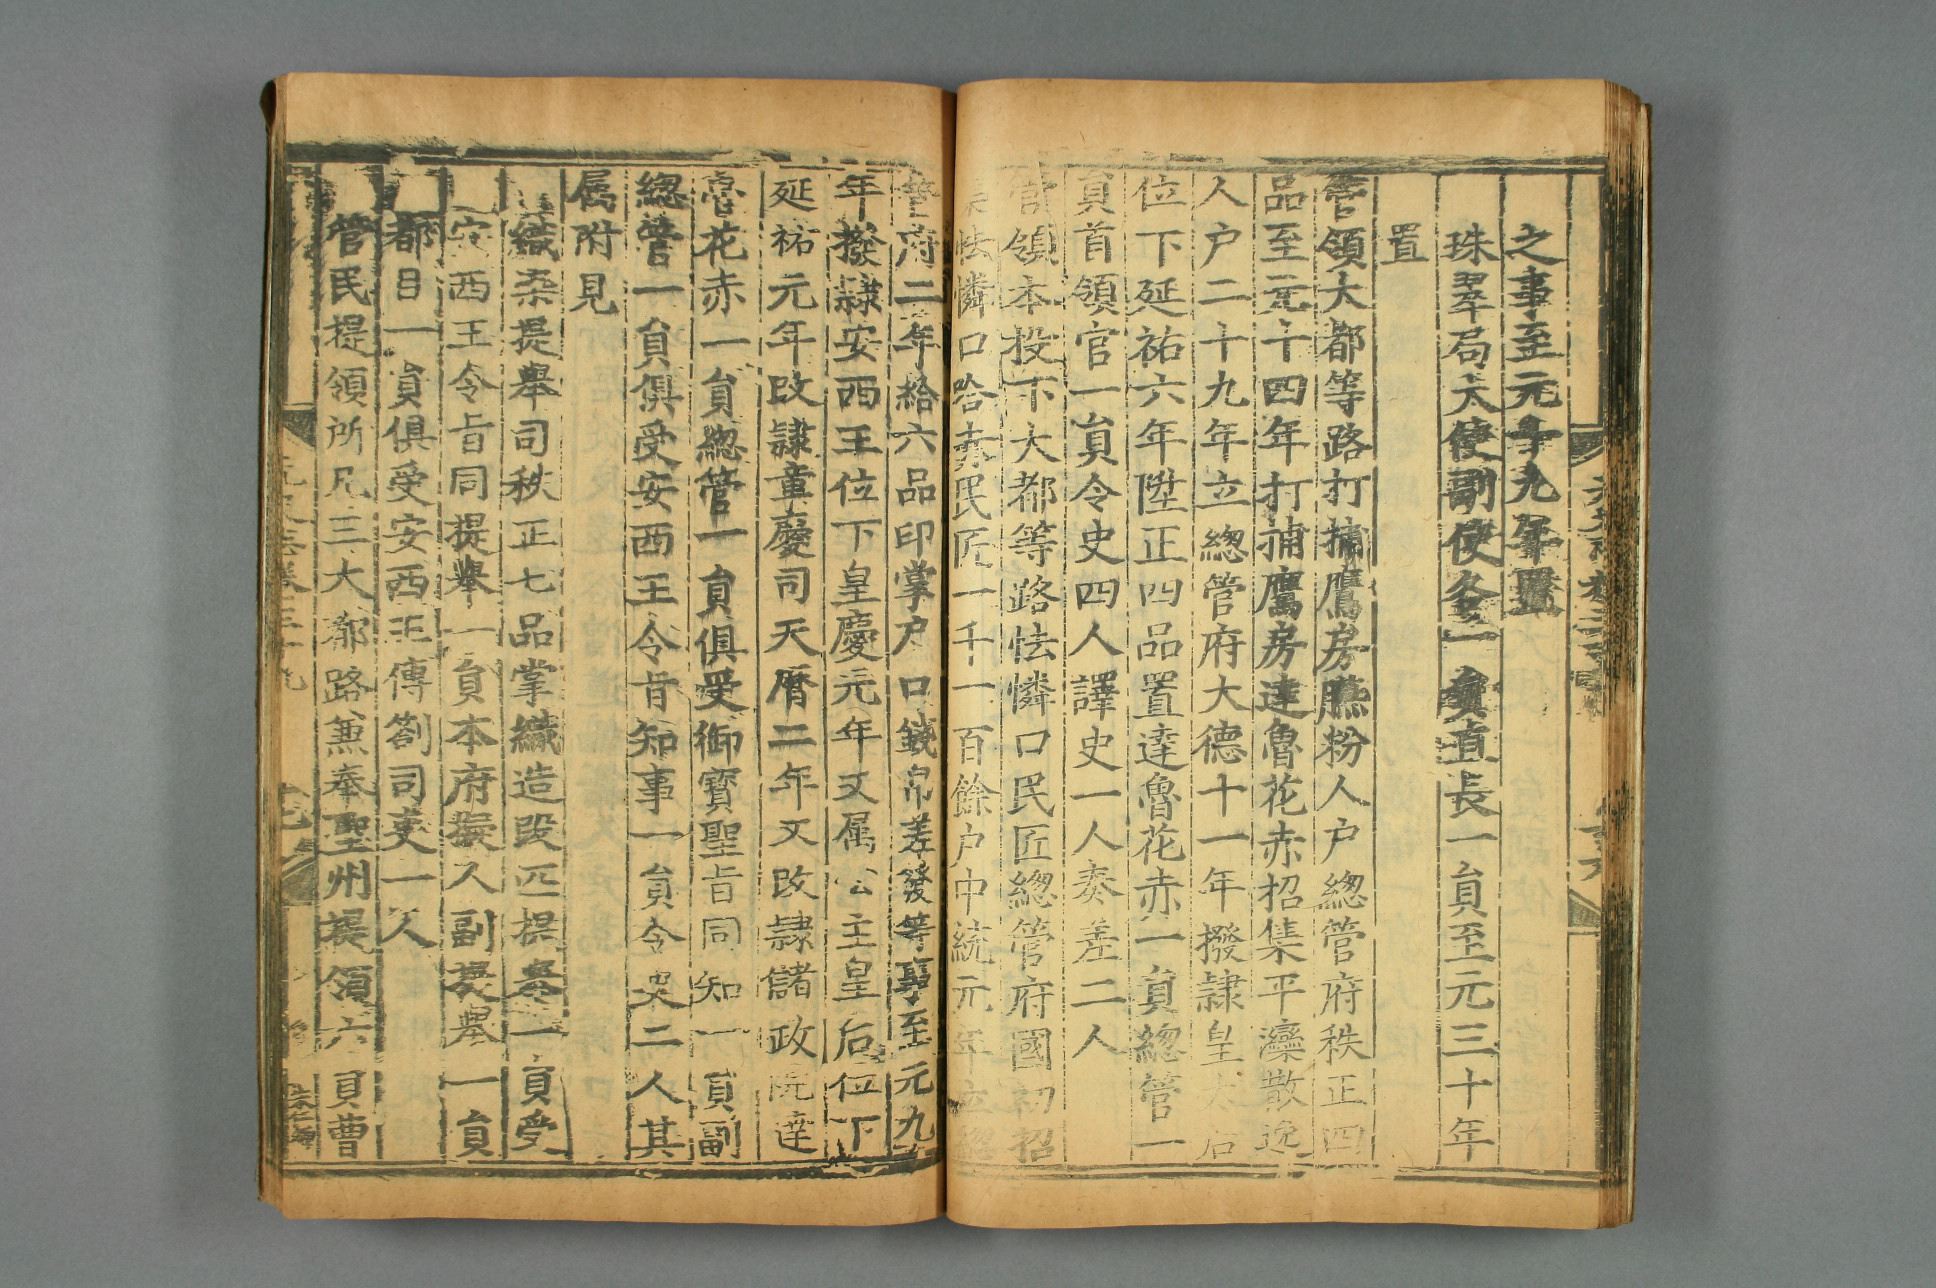 之事至元十九年置
珠翠局大使副使各一員直長一員至元三十年
置
管領大都等路打捕鷹房臙粉人户總管府秩正四
品至元十四年打捕鷹房達魯花赤招集平灤散逸
人户二十九年立總管府大德十一年撥隷皇太后
位下延祐六年陞正四品置達魯花赤一員總管一
員首領官一員令史四人譯史一人奏差二人
管領本投下大都等路怯憐口民匠總管府國初招
集怯憐口哈赤民匠一千一百餘户中統元年立總
管府二年給六品印掌户口錢帛差發等事至元九
年撥隷安西王位下皇慶元年又属公主皇后位下
延祐元年改隷章慶司天曆二年又改隷儲政院達
魯花赤一員總管一員俱受御寶聖旨同知一員副
總管一員俱受安西王令旨知事一員令史二人其
属附見
織染提舉司秩正七品掌織造段匹提舉一員受
安西王令旨同提舉一員本府擬人副提舉一員
都目一員俱受安西王傅劄司吏一人
管民提領所凡三大都路兼奉聖州提領六員曹